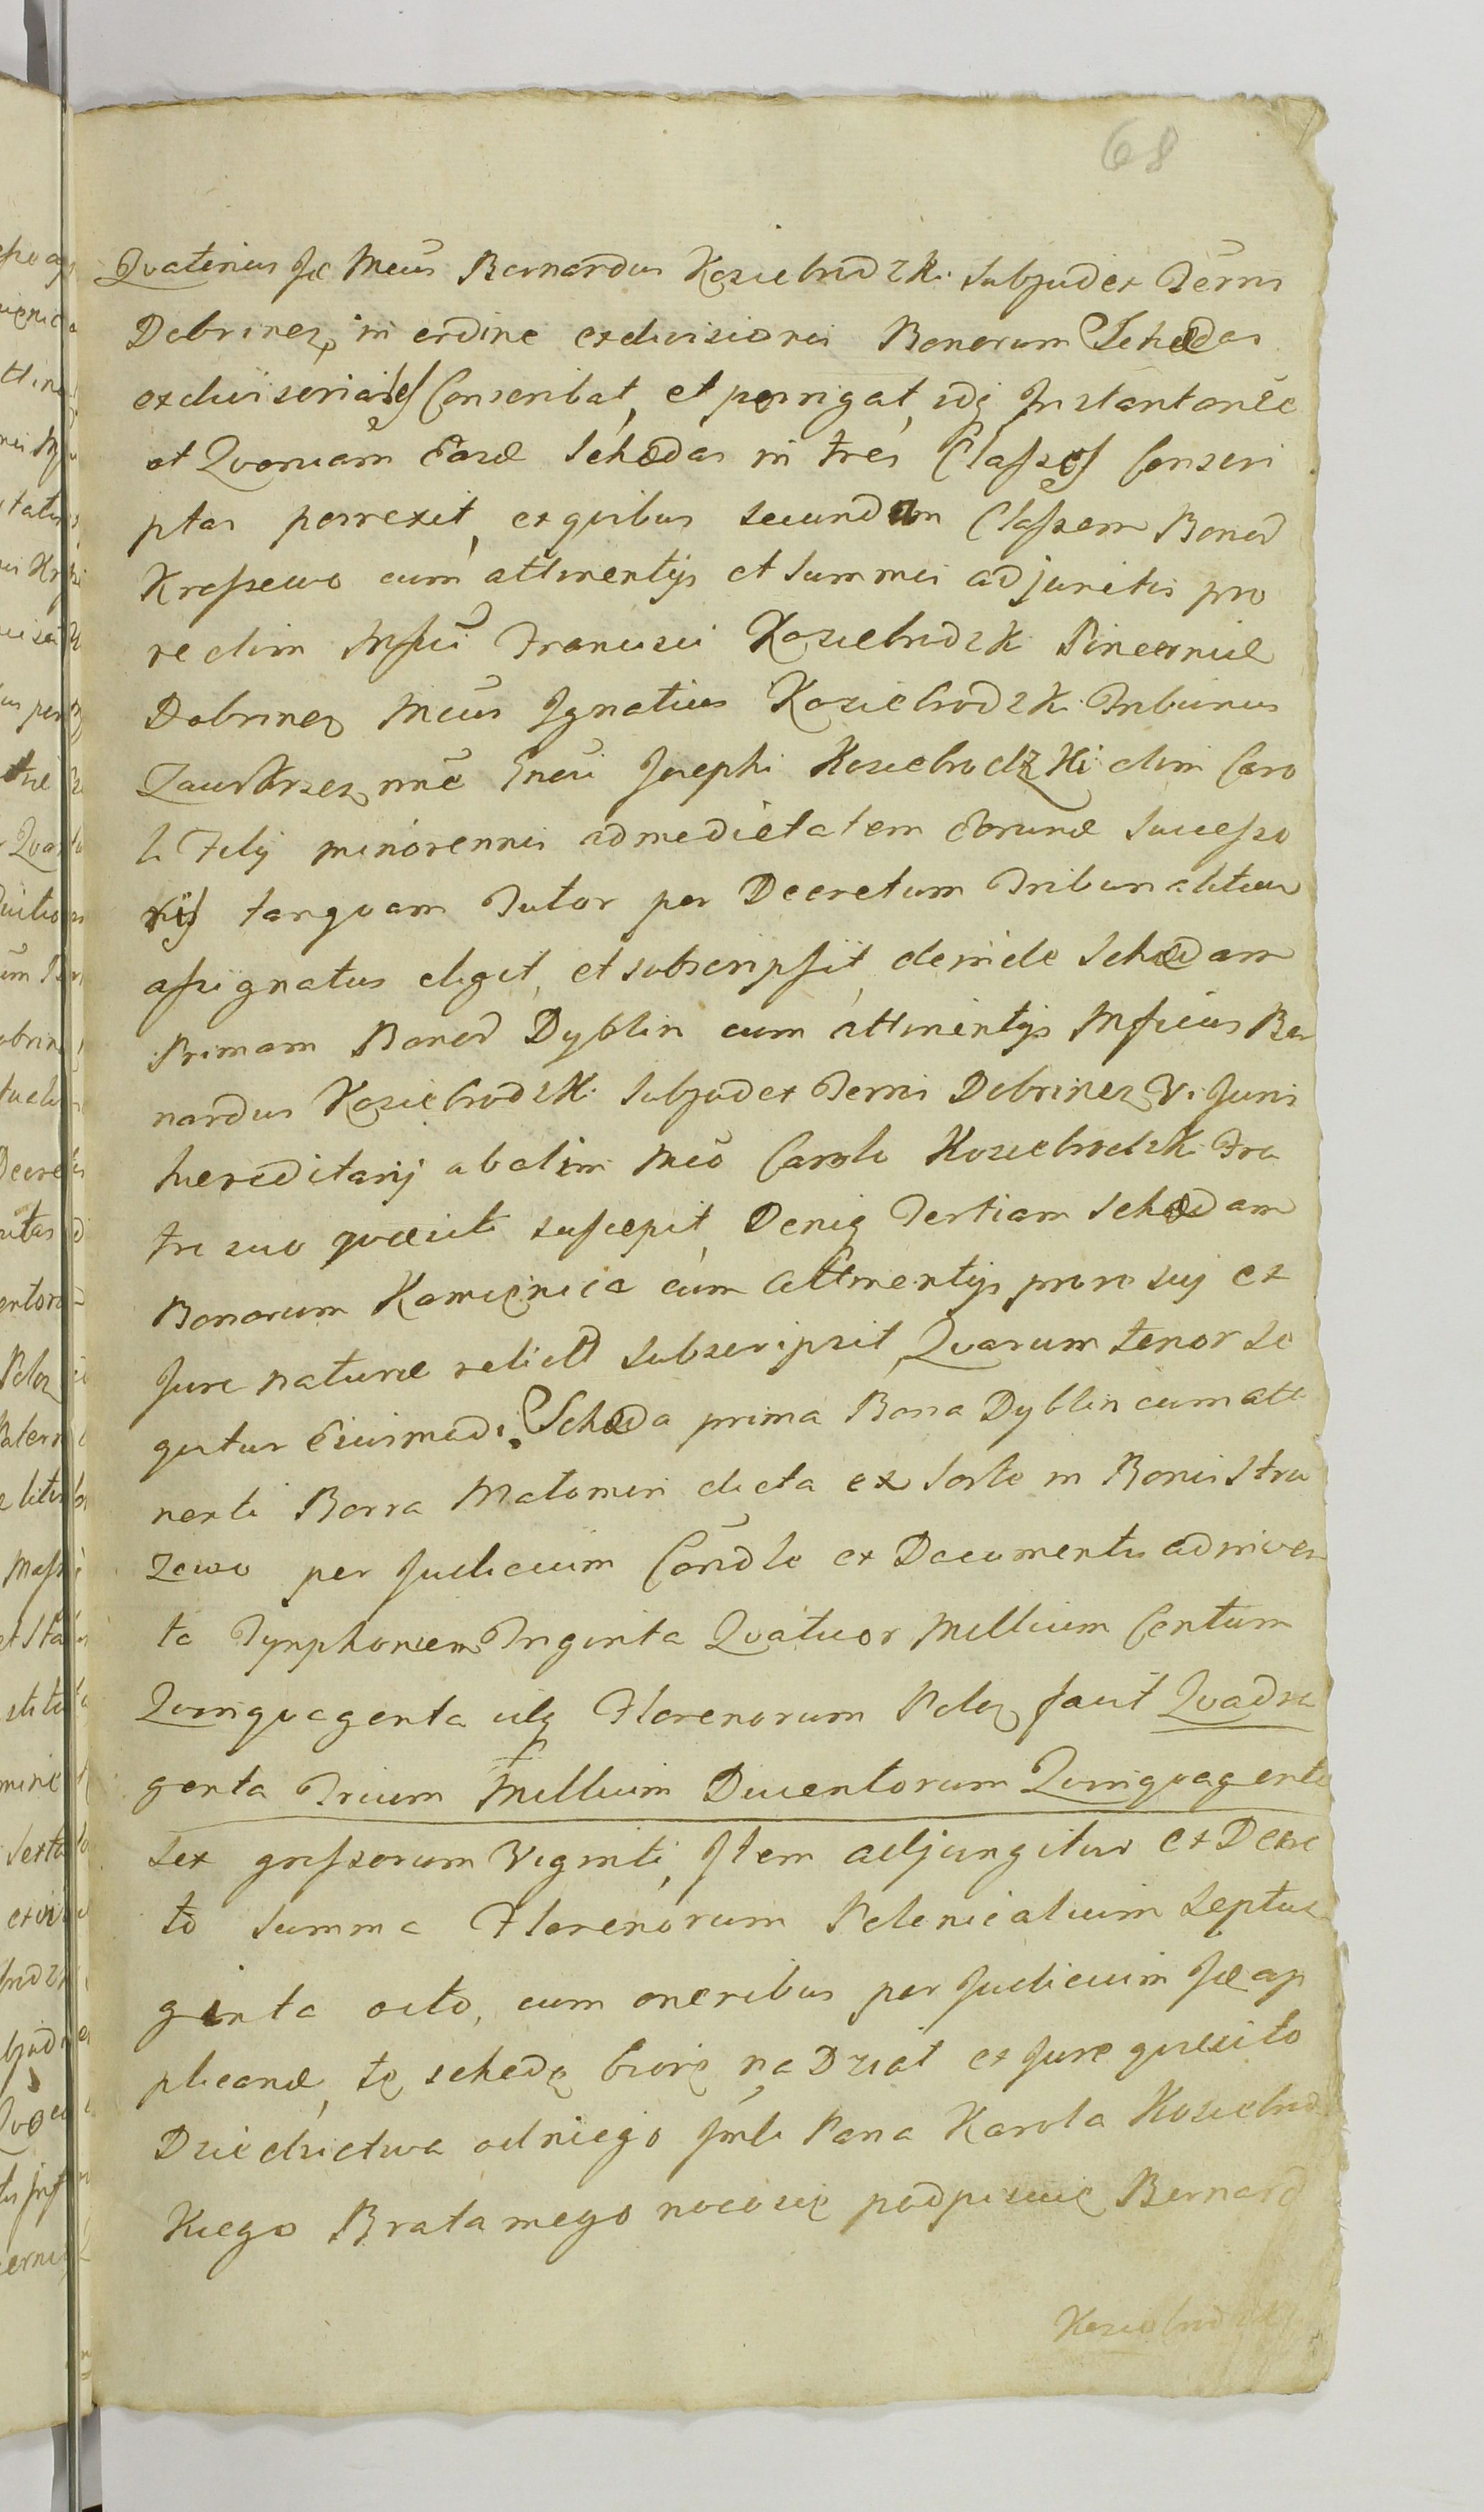 68
Quatenus Jæ Mcūs Bernardus Kosiebrodzki Subjudex Terrns
Dobrinez, in ordine exdivisionis Bonorum Schædas
exdivisorias Conscribat, et porrigat, idq Instantanēe
et Quoniam Easd Schædas in tres Classes Conscri
ptas porrexit, ex quibus secundam Classem Bonor
Krassewo cum attinentijs et Summis adjunctis pro
re olim Mfci Francisci Kosiebrodzki Pincernæ
Dobrinez Mcūs Ignatius Kosiebrodzki Tribunus
Zawkrzez, nnē Gnēsi Josephi Kosiebrodzki olim Caro
li Filij minorennis ad medietatem Earund Successo
ris tanquam Tutor per Decretum Tribunalitium
assignatus eligit, et subscripsit, deinde Schædam
Primam Bonor Dyblin cum attinentijs Mficus Ber
nardus Kosiebrodzki Subjudex Terrns Dobrinez, Vi Juris
hæreditarij ab olim Mcō Carolo Kosiebrodzki Fra
tre suo quæsiti suscepit, Deniq Tertiam Schædam
Bonorum Kamienica cum Attinentijs pro se suij ex
Jure naturæ relict subscripsit, Quarum tenor se
quitur Eiusmodi. Schæda prima Bona Dyblin cum atti
nenti Borra Matomin dicta ex Sorte in Bonis Stru
zewo per Judicium Cōndle ex Documentis adinven
ta Tynphonum Triginta Quatuor Millium Centum
Quinquaginta alq Florenorum Polon facit Quadra
ginta Trium Millium Ducentorum Quinquaginta
Sex grossorum Viginti, Item adjungitur ex Decre
to Summa Florenorum Polonicalium Septua
ginta octo, cum oneribus per Judicium Jæ ap
plicand, tę schedę biorę na Dział ex Jure quæsito
Dziedzictwa od niego Jmści Pana Karola Kosiebrodz
kiego Brata mego na co się podpisuię Bernard
Kosiebrodzki